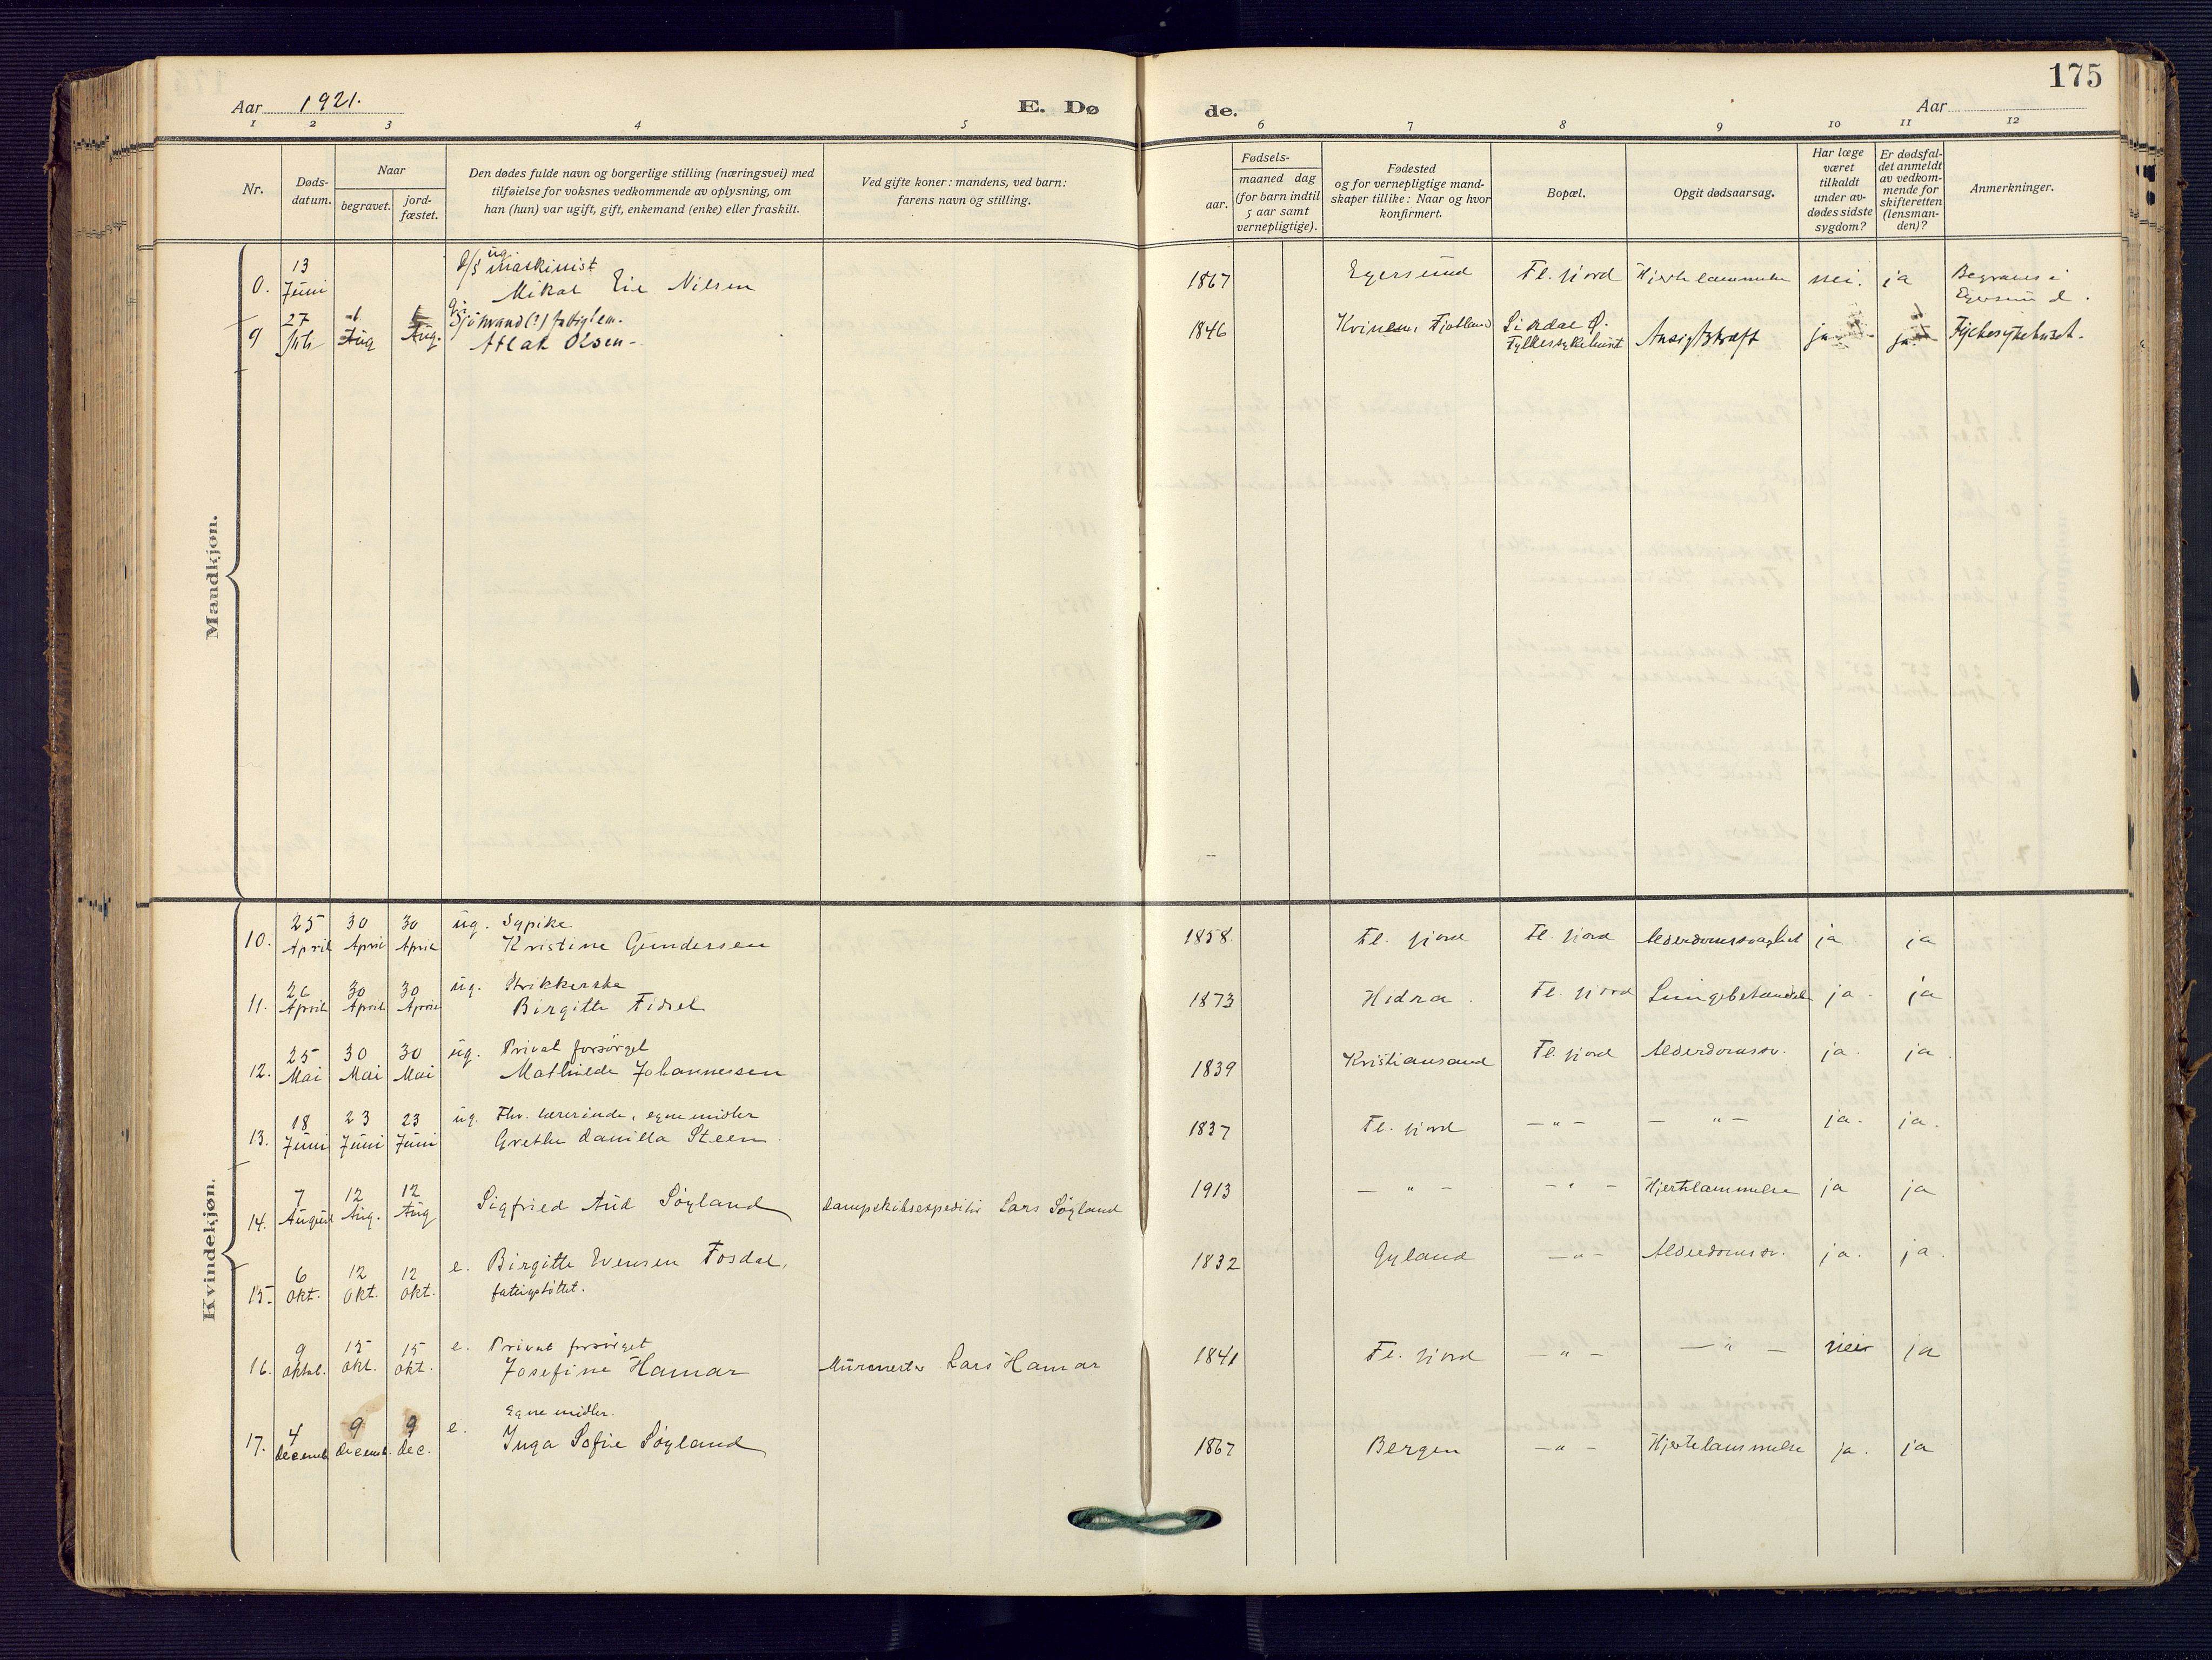 175
Aar 1921.
E. Dø de.
Aar
1 2 3 4 5 6 7 8 9 10 11 12
Nr.
Døds-
datum.
Naar
begravet.
jord-
fæstet.
Den dødes fulde navn og borgerlige stilling (næringsvei) med
tilføielse for voksnes vedkommende av oplysning, om
han (hun) var ugift, gift, enkemand (enke) eller fraskilt.
Ved gifte koner: mandens, ved barn:
farens navn og stilling.
Fødsels-
aar.
maaned dag
(for barn indtil
5 aar samt
vernepligtige).
Fødested
og for vernepligtige mand-
skaper tillike: Naar og hvor
konfirmert.
Bopæl.
Opgit dødsaarsag.
Har læge
været
tilkaldt
under av-
dødes sidste
sygdom?
Er dødsfal-
det anmeldt
av vedkom-
mende for
skifteretten
(lensman-
den)?
Anmerkninger.
Mandkjøn.
0. 13 Juni ug. d/s maskinist
Mikal Eie Nilsen 1867 Egersund Fl. fjord Hjertelammelse nei. ja Begraves i
Egersund.
9 27 Juli 1 Aug 1 Aug. Sjömand(?) fattiglem.
Atlak Olsen 1846 Kvinesd. Fjotland Sirdal
Fylkessykehuset Ansigtskræft ja ja Fylkesykehuset.
Kvindekjøn.
10. 25 April 30 April 30 April ug. Sypike
Kristine Gundersen 1858. Fl. fjord Fl. fjord Alderdomssvaghet ja ja
11. 26 April 30 April 30 April ug. Strikkerske
Birgitte Fidsel 1873 Hidra. Fl. fjord Lungebetændelse ja. ja
12. 25 Mai 30 Mai 30 Mai ug. Privat forsörget
Mathilde Johannessen 1839 Kristiansand Fl. fjord Alderdomssv. ja. ja.
13. 18 Juni 23 Juni 23 Juni ug. Fhv. lærerinde, egne midler
Grethe Danilla Steen 1837 Fl. fjord — " — — " — ja. ja.
14. 7 August 12 Aug. 12 Aug Sigfried Aud Söyland Dampskibsexpeditör Lars Söyland 1913 — " — — " — Hjertelammelse ja ja
15. 6 Okt. 12 Okt. 12 Okt. e. Birgitte Evensen Fosdal,
fattigstöttet. 1832 Gyland — " — Alderdomssv. ja. ja.
16. 9 Oktob. 15 Okt. 15 Okt. e. Privat forsörget
Josefine Hamar Murmester Lars Hamar 1841 Fl. fjord — " — — " — nei ja
17. 4 Decemb 9 Decemb. 9 Dec. e. Egne midler.
Inga Sofie Söyland 1867 Bergen — " — Hjertelammelse ja. ja